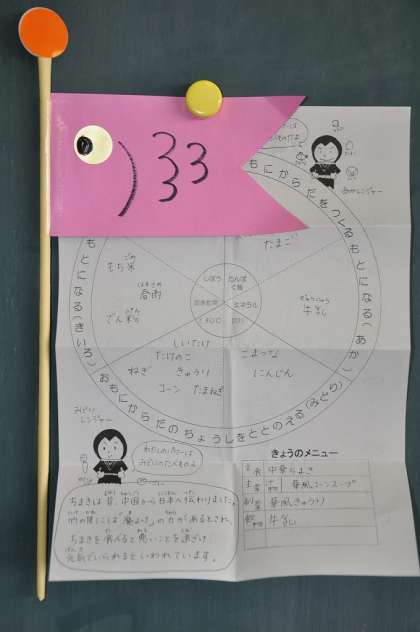 おもにからだをつくるもとになる(あか)
あかレンジャー
もとになる(きいろ)
たまご
もち米
春雨
でん粉
しぼう
たんぱく質
ミネラル
牛乳
しいたけ
たけのこ
ねぎ
きゅうり
コーン
たまねぎ
こまつな
にんじん
おもにからだのちょうしをととのえる(みどり)
みどりレンジャー
わたしのパワーは
みどりのたべもの
ちまきは昔、中国から日本へ伝わりました。
竹の葉には「魔よけ」の力があるとされ、
ちまきを食べると悪いことを遠ざけ
元気でいられるといわれています。
きょうのメニュー
主食 中華ちまき
華風コーンスープ
副菜 華風きゅうり
牛乳